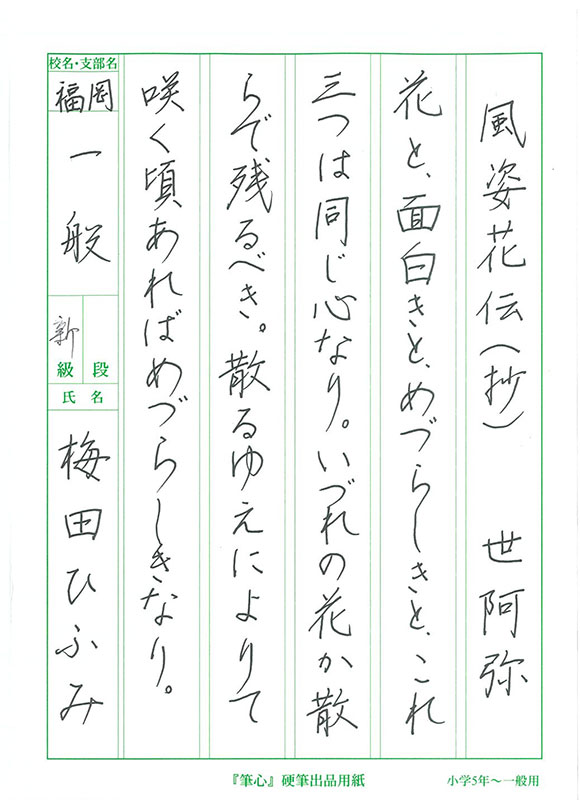 風姿花伝(抄) 世阿弥
花と、面白きと、めづらしきと、これ
三つは同じ心なり。いづれの花か散
らで残るべき。散るゆえによりて
咲く頃あればめづらしきなり。
校名・支部名
福岡
一般
新
級 段
氏名
梅田ひふみ
『筆心』硬筆出品用紙
小学5年〜一般用